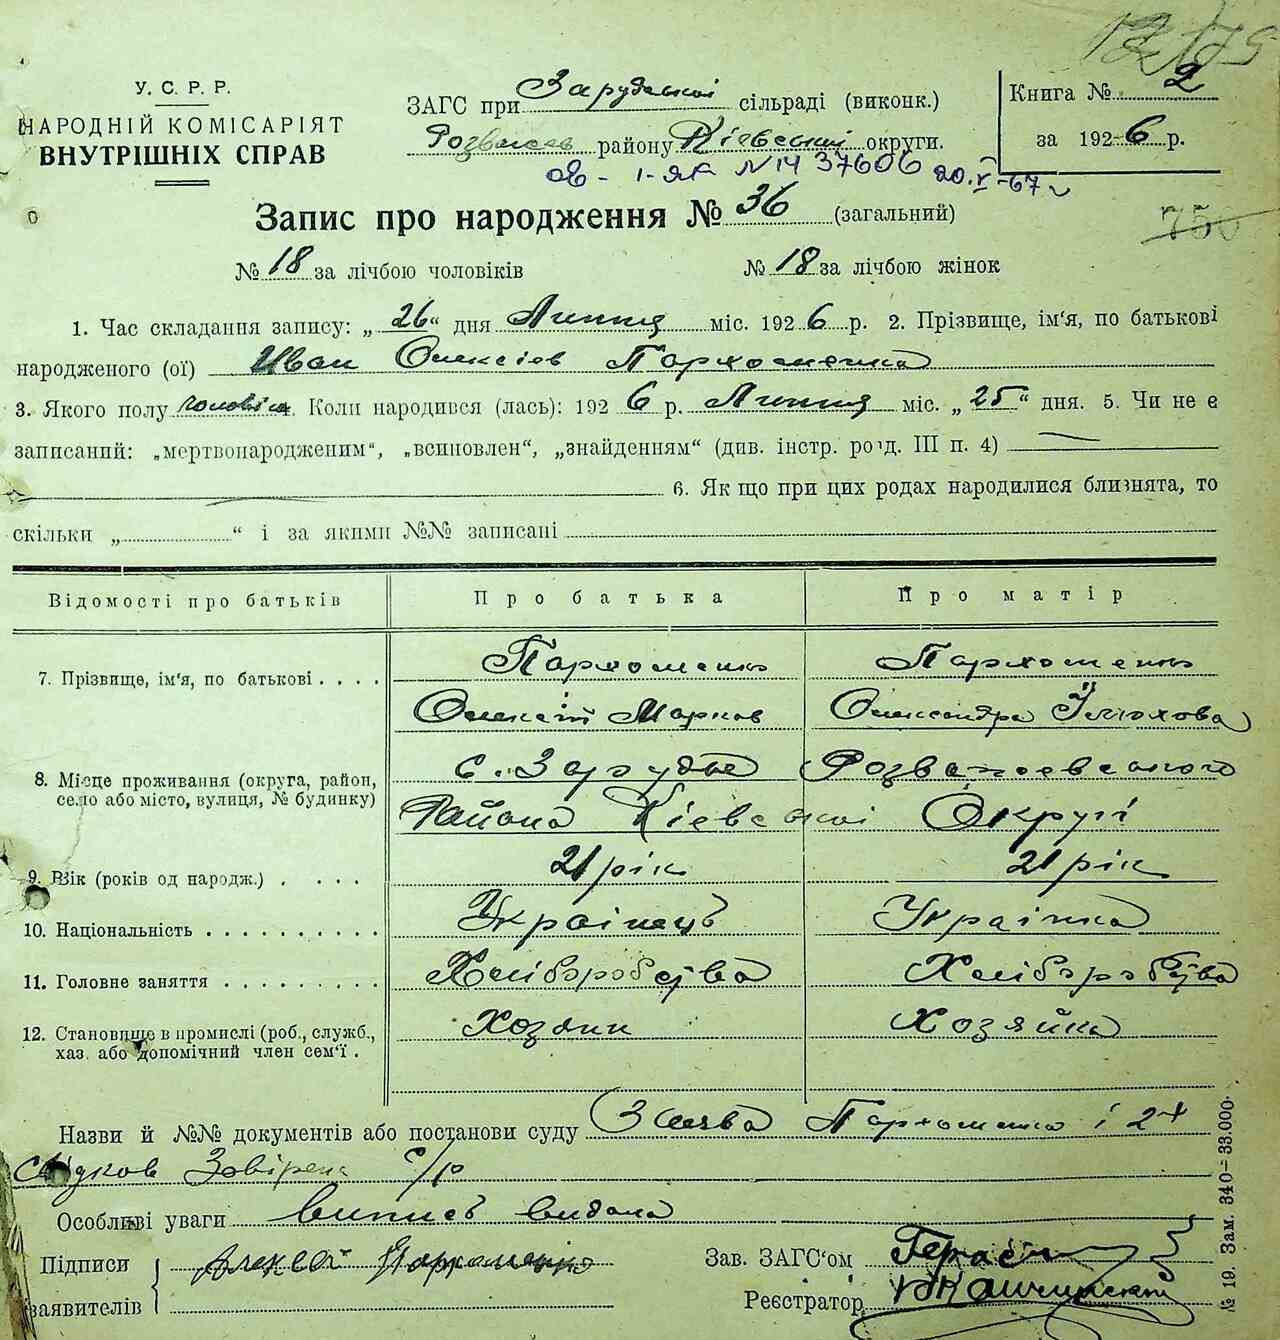 12175
У. С. Р. Р.
НАРОДНІЙ КОМІСАРІЯТ
ВНУТРІШНІХ СПРАВ
ЗАГС при Зарудської сільраді (виконк.)
Розважев району Кіевської округи.
I-ЯК N 14 37606 20.V-67
Книга № 2
за 1926 р.
Запис про народження № 36 (загальний)
750
№ 18 за лічбою чоловіків № 18 за лічбою жінок
1. Час складання запису: „26“ дня Липня міс. 1926 р. 2. Прізвище, ім'я, по батькові
народженого (ої) Иван Олексіев Пархоменко
3. Якого полу чоловіч. Коли народився (лась): 1926 р. Липня міс. „25“ дня. 5. Чи не є
записаний: „мертвонародженим“, „всиновлен“, „знайденням“ (див. інстр. розд. III п. 4)
6. Як що при цих родах народилися близнята, то
скільки „ “ і за якими №№ записані
Відомості про батьків Про батька Про матір
7. Прізвище, ім'я, по батькові . . . . Пархоменко Пархоменко
Олексій Марков Олександра
8. Місце проживання (округа, район, село або місто, вулиця, № будинку) с. Зарудье Розважевського
Района Кіевскоі Округі
9. Вік (років од народж.) . . . . 21 рік 21 рік
10. Національність . . . . . . . . . . Украінець Украінка
11. Головне заняття . . . . . . . . . Хліборобства Хліборобства
12. Становище в промислі (роб., служб., Хозяин Хозяйка
хаз. або допомічний член сем'ї .
Назви й №№ документів або постанови суду Заява Пархоменка і 2х
свідков Завірена с/р
Особливі уваги випись видана
Підписи Алексей Пархоменко Зав. ЗАГС'ом
заявителів Реєстратор
№ 19. Зам. 340–33.000.